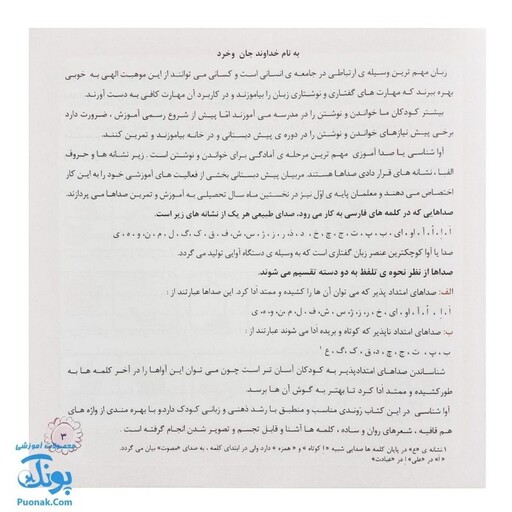 به نام خداوند جان وخرد
زبان مهم ترین وسیله ی ارتباطی در جامعه ی انسانی است و کسانی می توانند از این موهبت الهی به خوبی
بهره ببرند که مهارت های گفتاری و نوشتاری زبان را بیاموزند و در کاربرد آن مهارت کافی به دست آورند.
بیشتر کودکان ما خواندن و نوشتن را در مدرسه می آموزند امّا پیش از شروع رسمی آموزش ، ضرورت دارد
برخی پیش نیازهای خواندن و نوشتن را در دوره ی پیش دبستانی و در خانه بیاموزند و تمرین کنند.
آوا شناسی یا صدا آموزی مهم ترین مرحله ی آمادگی برای خواندن و نوشتن است . زیر نشانه ها و حروف
الفبا ، نشانه های قرار دادی صداها هستند. مربیان پیش دبستانی بخشی از فعالیت های آموزشی خود را به این کار
اختصاص می دهند و معلمان پایه ی اوّل نیز در نخستین ماه سال تحصیلی به آموزش و تمرین صداها می پردازند.
صداهایی که در کلمه های فارسی به کار می رود، صدای طبیعی هر یک از نشانه های زیر است.
اَ ، اِ ، اُ ، آ ، او ، ای ، ب ، پ ، ت ، ج ، چ ، خ ، د ، ذ ، ر ، ز ، ژ ، س ، ش ، ف ، ق ، ک ، گ ، ل ، م ، ن ، و ، ه ، ی
صدا یا آوا کوچکترین عنصر زبان گفتاری است که به وسیله ی دستگاه آوایی تولید می گردد.
صداها از نظر نحوه ی تلفظ به دو دسته تقسیم می شوند.
الف: صداهای امتداد پذیر که می توان آن ها را کشیده و ممتد ادا کرد. این صداها عبارتند از :
اَ ، اِ ، اُ ، آ ، او ، ای ، خ ، ر ، ز ، ژ ، س ، ش ، ف ، ل ، م ، ن ، و ، ه ، ی
ب: صداهای امتداد ناپذیر که کوتاه و بریده ادا می شوند عبارتند از :
ب ، پ ، ت ، ج ، چ ، د ، ق ، ک ، گ ، ع ۱
شناساندن صداهای امتدادپذیر به کودکان آسان تر است چون می توان این آواها را در آخر کلمه ها به
طور کشیده و ممتد ادا کرد تا بهتر به گوش آن ها برسد.
آوا شناسی در این کتاب رَوندی مناسب و منطبق با رشد ذهنی و زبانی کودک دارد و با بهره مندی از واژه های
هم قافیه ، شعرهای روان و ساده ، کلمه ها آشنا و قابل تجسم و تصویر شدن انجام گرفته است .
۱ نشانه ی «ع» در پایان کلمه ها صدایی شبیه «اَ کوتاه » و « همزه » دارد ولی در ابتدای کلمه ، به صدای «مصوت» بیان می گردد.
« اَ» در «علی» اِ در «عبادت»
۳
محصولات آموزشی
پونک
Puonak.Com